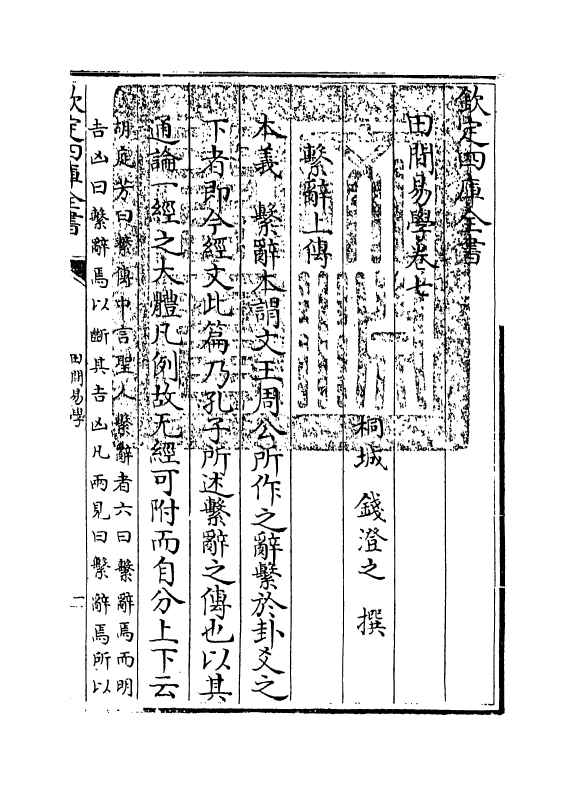 欽定四庫全書
田間易學卷七
桐城 錢澄之 撰
繫辭上傳
本義 繫辭本謂文王周公所作之辭繫於卦爻之
下者即今經文此篇乃孔子所述繫辭之傳也以其
通論一經之大體凡例故无經可附而自分上下云
胡庭芳曰繫傳中言聖人繫辭者六曰繫辭焉而明
吉凶曰繫辭焉以斷其吉凶凡兩見曰繫辭焉所以
欽定四庫全書
田間易學
一